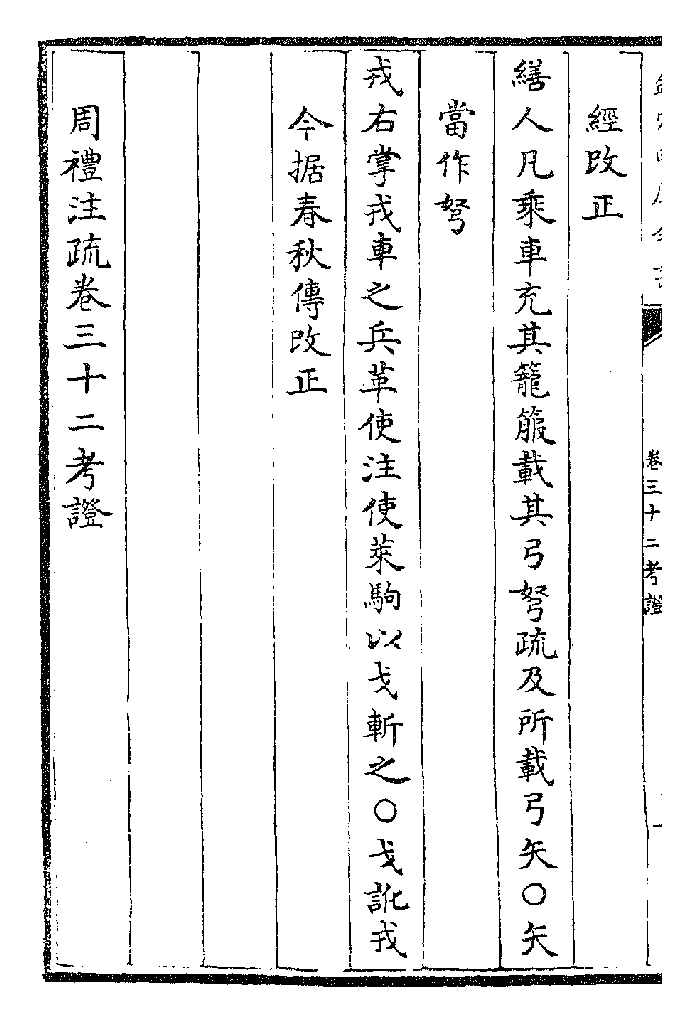 經改正
繕人凡乘車充其籠箙載其弓弩疏及所載弓矢○矢
當作弩
戎右掌戎車之兵革使注使萊駒以戈斬之○戈訛戎
今据春秋傳改正
周禮注疏卷三十二考證
卷三十二考證